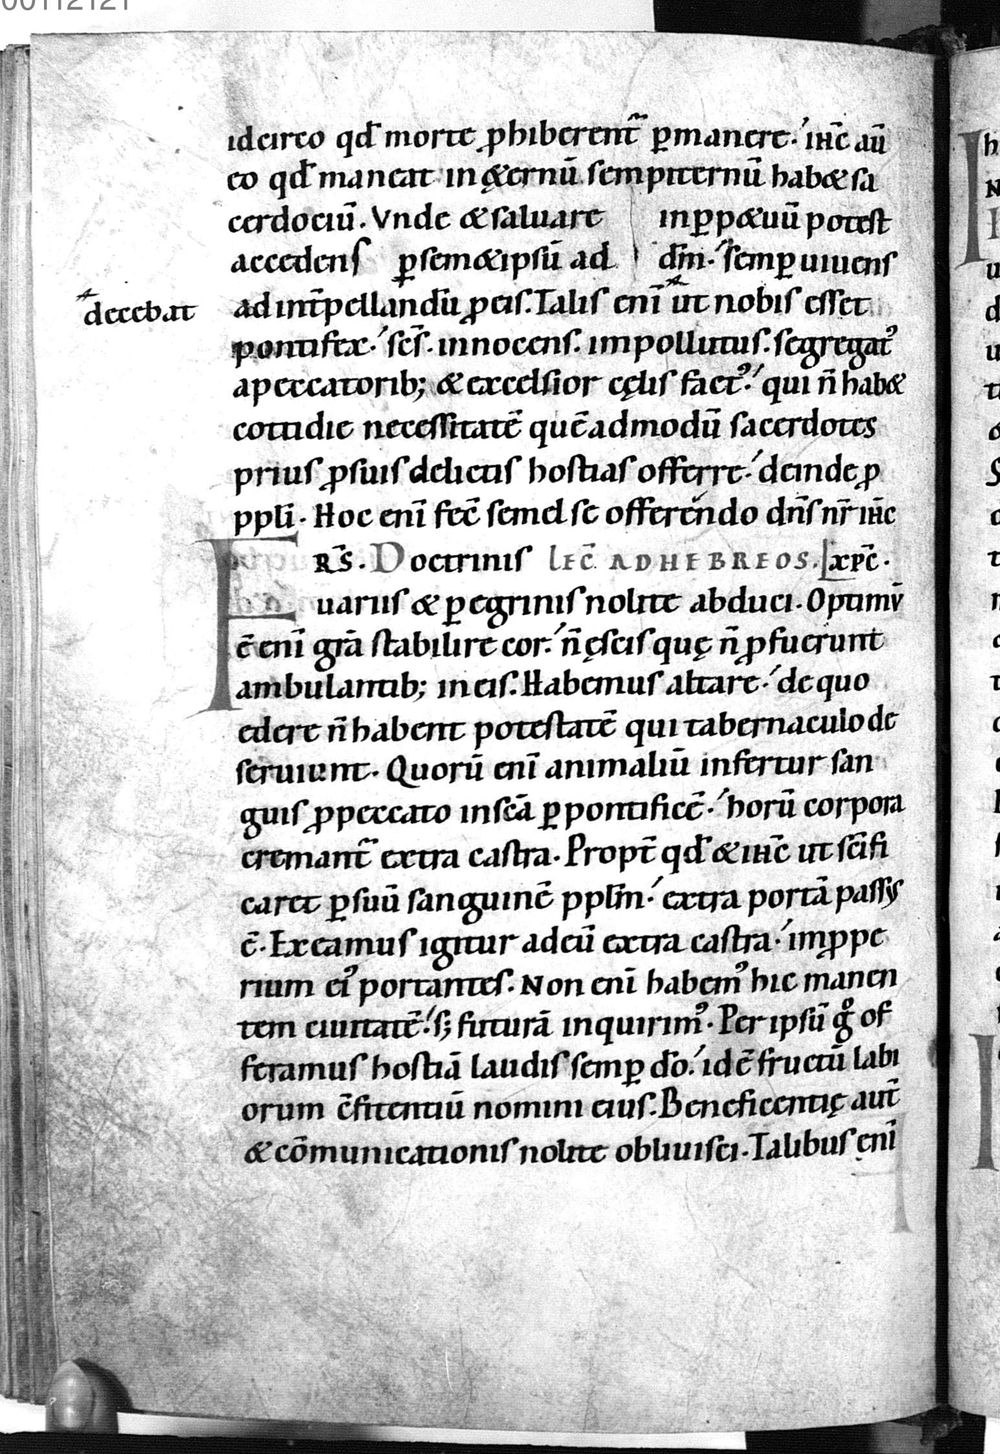 00112121
idcirco qđ morte ꝓhiberent̃ ꝑmanere. ihc̄ aū
eo qđ maneat in &ernū sempiternū hab& sa
cerdociū. Vnde & saluare inꝑp&uū potest
accedens ꝑ sem&ipsū ad dm̄. semꝑ uiuens
decebat
ad int̄pellandū ꝓ eis. Talis enī ut nobis esset
pontifex. sc̄s. innocens. impollutus. segregatꝰ
a peccatorib; & excelsior cęlis factꝰ. qui n̄ hab&
cottidie necessitatē quēadmodū sacerdotes
prius ꝓ suis delictis hostias offerre. deinde ꝓ
ppli. Hoc enī fec̄ semel se offerendo dn̄s nr̄ ihc̄
F RS̄. Doctrinis LEC̄ AD HEBREOS. xpc̄.
uariis & ꝑegrinis nolite abduci. Optimū
ē enī gr̄a stabilire cor. n̄ ęscis quę n̄ ꝓfuerunt
ambulantib; in eis. Habemus altare. de quo
edere n̄ habent potestatē qui tabernaculo de
seruiunt. Quorū enī animaliū infertur san
guis ꝓ peccato in sc̄a ꝑ pontificē. horū corpora
cremant̃ extra castra. Propt̄ qđ & ihc̄ ut sc̄ifi
caret ꝑ suū sanguinē pplm̄. extra portā passꝰ
ē. Exeamus igitur ad eū extra castra. imꝓpe
rium eiꝰ portantes. Non enī habemꝰ hic manen
tem ciuitatē. s; futurā inquirimꝰ. Per ipsū gͦ of
feramus hostiā laudis semꝑ do̅. id ē fructū labi
orum c̄fitentiū nomini eius. Beneficentię aut̄
& cōmunicationis nolite obliuisci. Talibus enī